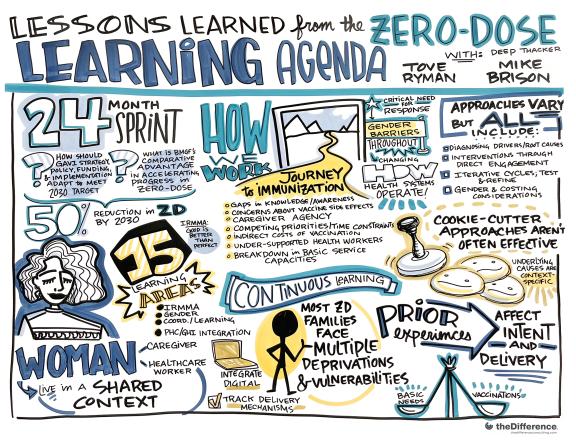 LESSONS LEARNED from the ZERO-DOSE
LEARNING AGENDA
WITH: DEEP THACKER
TOVE RYMAN
MIKE BRISON
24 MONTH SPRINT
? HOW SHOULD
GAVI STRATEGY
POLICY, FUNDING,
& IMPLEMENTATION
ADAPT to MEET
2030 TARGET
? WHAT is BMGF's
COMPARATIVE
ADVANTAGE
in ACCELERATING
PROGRESS in
ZERO-DOSE
50% REDUCTION in ZD
BY 2030
IRMMA:
GOOD is
BETTER
THAN
PERFECT
15
LEARNING
AREAS
IRMMA
GENDER
COORD./LEARNING
PHC/GHI INTEGRATION
WOMAN
CAREGIVER
HEALTHCARE
WORKER
LIVE in a SHARED
CONTEXT
HOW
WE
WORK
JOURNEY
to IMMUNIZATION
GAPS in KNOWLEDGE/AWARENESS
CONCERNS ABOUT VACCINE SIDE EFFECTS
CAREGIVER AGENCY
COMPETING PRIORITIES/TIME CONSTRAINTS
INDIRECT COSTS of VACCINATION
UNDER-SUPPORTED HEALTH WORKERS
BREAKDOWN in BASIC SERVICE
CAPACITIES
CRITICAL NEED
for
RESPONSE
GENDER
BARRIERS
THROUGHOUT
CHANGING
HOW
HEALTH SYSTEMS
OPERATE!
APPROACHES VARY
BUT ALL
INCLUDE:
DIAGNOSING DRIVERS/ROOT CAUSES
INTERVENTIONS THROUGH
DIRECT ENGAGEMENT
ITERATIVE CYCLES; TEST
& REFINE
GENDER & COSTING
CONSIDERATIONS
COOKIE-CUTTER
APPROACHES AREN'T
OFTEN EFFECTIVE
UNDERLYING
CAUSES ARE
CONTEXT-
SPECIFIC
CONTINUOUS LEARNING
INTEGRATE
DIGITAL
TRACK DELIVERY
MECHANISMS
MOST ZD
FAMILIES
FACE
MULTIPLE
DEPRIVATIONS
& VULNERABILITIES
PRIOR
experiences
AFFECT
INTENT
AND
DELIVERY
BASIC
NEEDS
VACCINATIONS
theDifference.